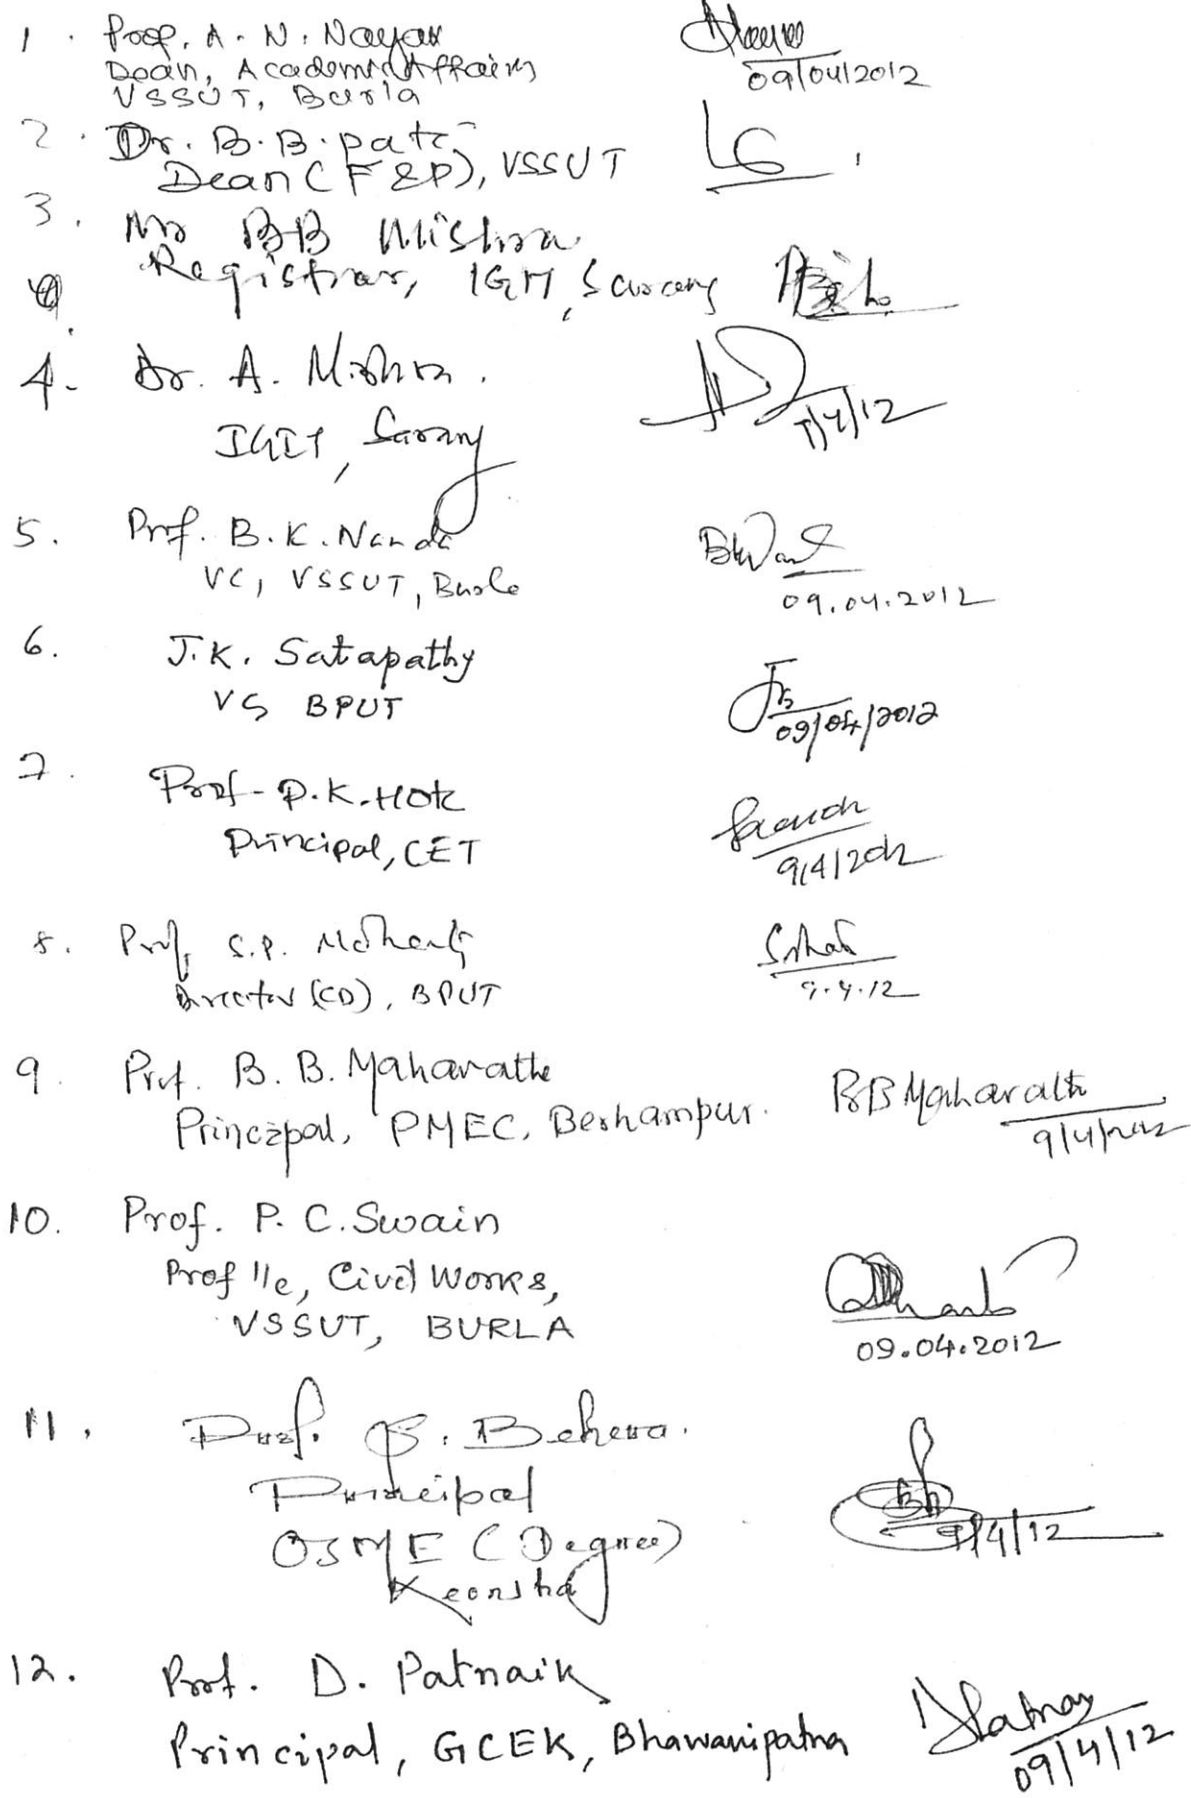 1. Prof. A. N. Nayak
Dean, Academic Affairs
VSSUT, Burla
09/04/2012
2. Dr. B. B. Pati
Dean (F&P), VSSUT
3. Mr BB Mishra
Registrar, IGIT, Sarang
4. Dr. A. Mishra.
IGIT, Sarang
9/4/12
5. Prof. B.K. Nanda
VC, VSSUT, Burla
09.04.2012
6. J.K. Satapathy
VC BPUT
09/04/2012
7. Prof. P.K. Hota
Principal, CET
9/4/2012
8. Prof. S.P. Mohanty
Director (CD), BPUT
9.4.12
9. Prof. B. B. Maharathe
Principal, PMEC, Berhampur.
BB Maharathe
9/4/2012
10. Prof. P. C. Swain
Prof I/c, Civil Works,
VSSUT, BURLA
09.04.2012
11. Prof. B. Behera.
Principal
OSME (Degree)
9/4/12
12. Prof. D. Patnaik
Principal, GCEK, Bhawanipatna
09/4/12